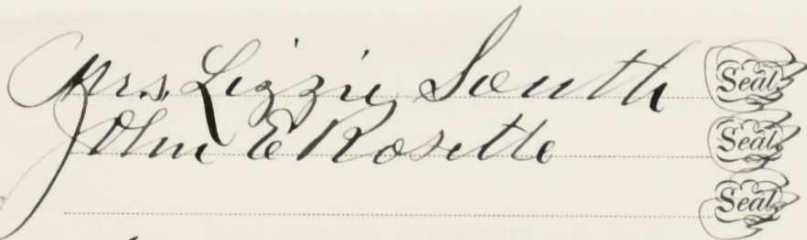 Mrs. Lizzie South Seal
John E Rosette Seal
Seal